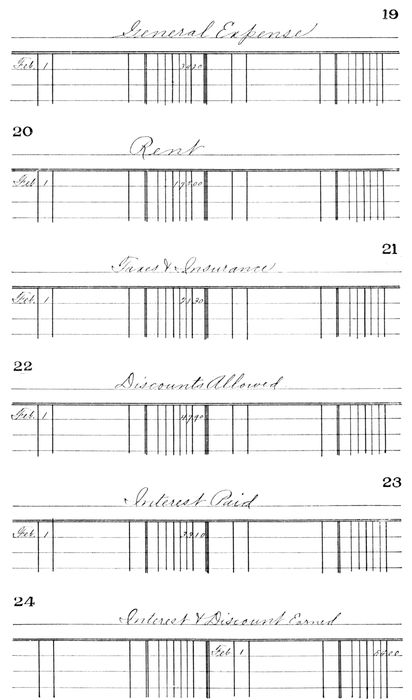 19
General Expense
Feb. 1
20
Rent
Feb. 1 175 00
21
Taxes & Insurance
Feb. 1 21 30
22
Discounts Allowed
Feb. 1 47 90
23
Interest Paid
Feb. 1 33 10
24
Interest & Discount Earned
Feb. 1